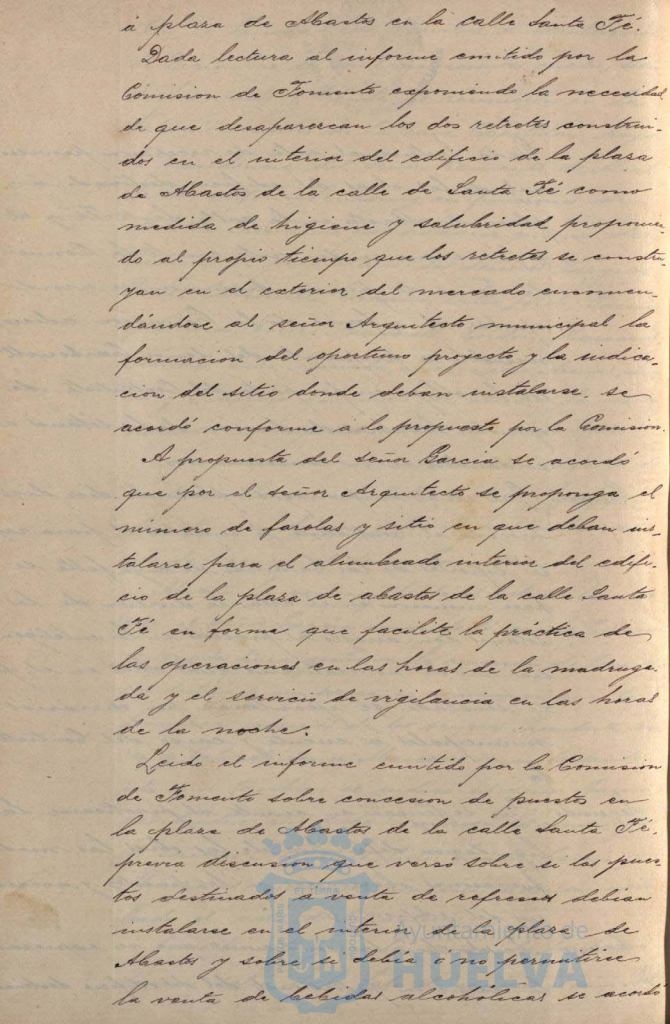 á plaza de Abastos en la calle Santa Fé.
Dada lectura al informe emitido por la
Comision de Fomento exponiendo la necesidad
de que desaparezcan los dos retretes construi-
dos en el interior del edificio de la plaza
de Abastos de la calle de Santa Fé como
medida de higiene y salubridad proponien-
do al propio tiempo que los retretes se constru-
yan en el exterior del mercado encomen-
dándose al señor Arquitecto municipal la
formacion del oportuno proyecto y la indica-
cion del sitio donde deban instalarse, se
acordó conforme á lo propuesto por la Comision.
A propuesta del señor Garcia se acordó
que por el señor Arquitecto se proponga el
número de farolas y sitio en que deban ins-
talarse para el alumbrado interior del edifi-
cio de la plaza de abastos de la calle Santa
Fé en forma que facilite la práctica de
las operaciones en las horas de la madruga-
da y el servicio de vigilancia en las horas
de la noche.
Leido el informe emitido por la Comision
de Fomento sobre concesion de puestos en
la plaza de Abastos de la calle Santa Fé,
previa discusion que versó sobre si los pues-
tos destinados á venta de refrescos debian
instalarse en el interior de la plaza de
Abastos y sobre si debia ó no permitirse
la venta de bebidas alcohólicas se acordó
Ayuntamiento de
HUELVA